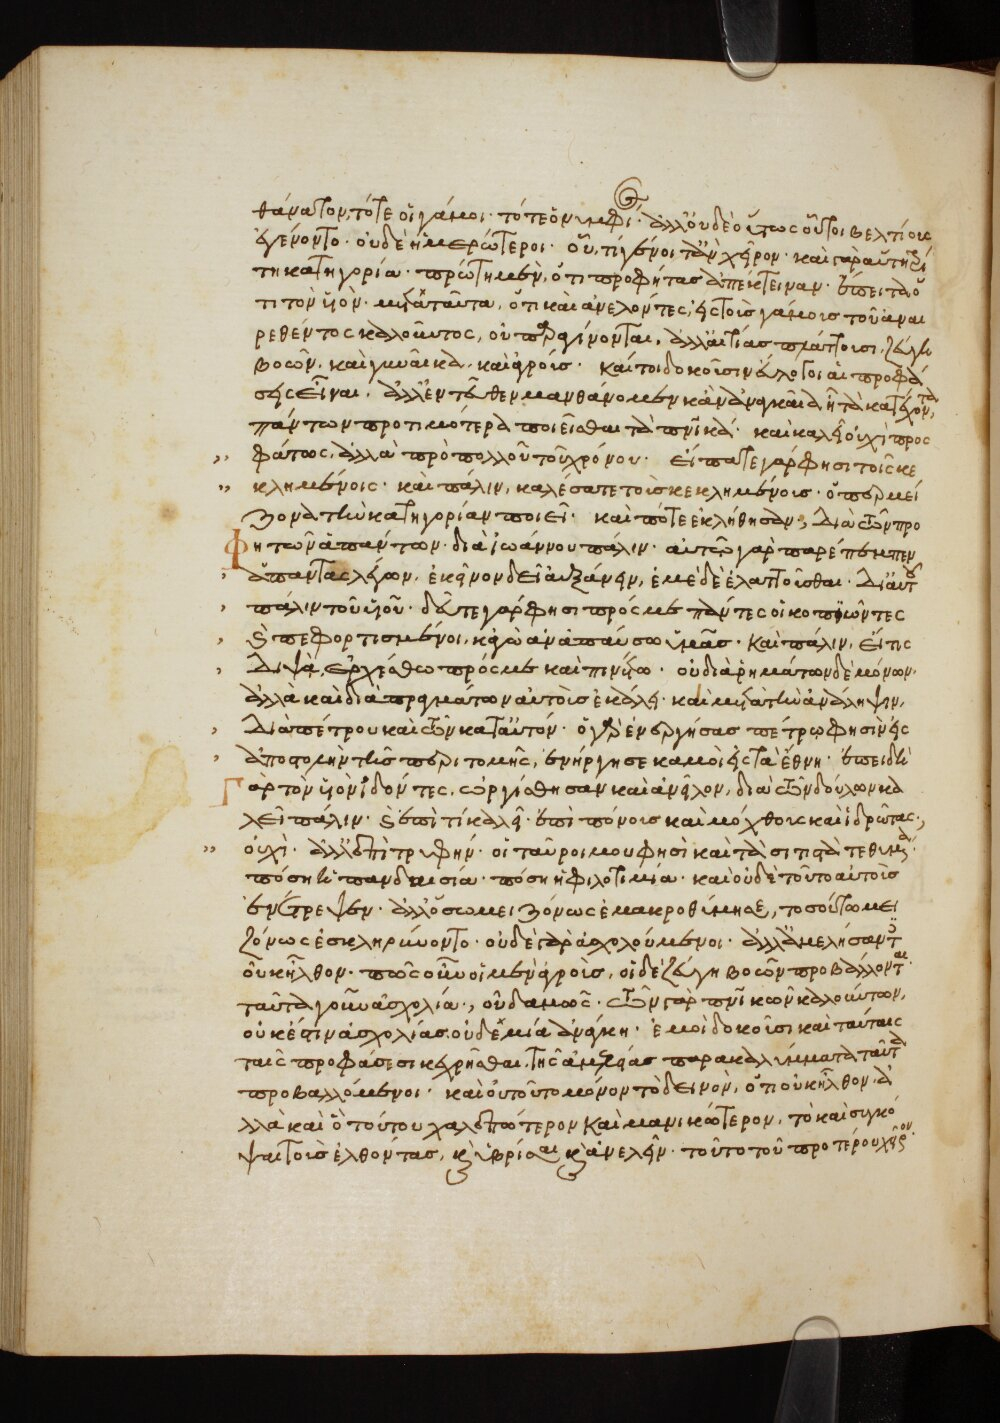 θάνατον, τότε οἱ γάμοι· τότε ὁ νυμφί. ἀλλ' οὐδὲ οὕτως οὗτοι βελτίους
ἐγένοντο· οὐδὲ ἡμερώτεροι· οὗ, τί γένοιτ' ἂν χεῖρον· καὶ γὰρ αὕτη τρί
τη κατηγορία· πρώτη μὲν, ὅτι προφήτας ἀπέκτειναν· ἔπειτα ὅ
τι τὸν υἱόν· μετὰ ταῦτα, ὅτι καὶ ἀνελόντες, εἰς τοὺς γάμους τοῦ ἀναι
ρεθέντος καλοῦντος, οὐ παραγίνονται, ἀλλ' αἰτίας πλάττουσι, ζεύγη
βοῶν, καὶ γυναῖκα, καὶ ἀγρούς· καίτοι δοκοῦσιν εὔλογοι αἱ προφά
σεις εἶναι. ἀλλ' ἐντεῦθεν μανθάνομεν κἂν ἀναγκαῖα ᾖ τὰ κατέχοντα,
πάντων προτιμότερα ποιεῖσθαι τὰ πνικά· καὶ καλεῖ οὐχὶ προς
φάτως, ἀλλὰ πρὸ πολλοῦ τοῦ χρόνου· εἴπατε γάρ φησι τοῖς κε
κλημένοις· καὶ πάλιν, καλέσατε τοὺς κεκλημένους· ὅπερ μεί
ζονα τὴν κατηγορίαν ποιεῖ· καὶ πότε ἐκλήθησαν; διὰ τῶν προ
φητῶν ἁπάντων· διὰ ἰωάννου πάλιν· αὐτῶ γὰρ παρέπεμπεν
ἅπαντας λέγων, ἐκεῖνον δεῖ αὐξάνειν, ἐμὲ δὲ ἐλαττοῦσθαι. Δι' αὐτοῦ
πάλιν τοῦ υἱοῦ· δεῦτε γάρ φησι πρός με πάντες οἱ κοπιῶντες
καὶ πεφορτισμένοι, κἀγὼ ἀναπαύσω ὑμᾶς· Καὶ πάλιν, εἴ τις
Διψᾶ, ἐρχέσθω πρός με καὶ πινέτω· οὐ διὰ ῥημάτων δὲ μόνων·
ἀλλὰ καὶ διὰ πραγμάτων αὐτοὺς ἐκάλει· καὶ μετὰ τὴν ἀνάληψιν,
Διὰ πέτρου καὶ τῶν κατ' αὐτόν· ὁ γὰρ ἐνεργήσας πέτρω φησὶν εἰς
ἀποστολὴν τῆς περιτομῆς, ἐνήργησε κἀμοὶ εἰς τὰ ἔθνη· ἐπειδὴ
Γὰρ τὸν υἱὸν ἰδόντες, ὠργίσθησαν καὶ ἀνεῖλον, διὰ τῶν δούλων κα
λεῖ πάλιν· καὶ ἐπὶ τί καλεῖ· ἐπὶ πόνους καὶ μόχθους καὶ ἱδρῶτας;
οὐχὶ· ἀλλ' ἐπὶ τρυφήν· οἱ ταῦροί μου φησὶ καὶ τὰ σιτιστὰ τεθυμένα.
πόση ἡ πανδαισία· πόση ἡ φιλοτιμία· καὶ οὐδὲ τοῦτο αὐτοὺς
ἐνέτρεψεν· ἀλλ' ὅσω μειζόνως ἐμακροθύμησε, τοσούτω μει
ζόνως ἐσκληρύνοντο· οὐδὲ γὰρ ἀσχολούμενοι· ἀλλ' ἀμελήσαντες
οὐκ ἦλθον· πῶς οὖν οἱ μὲν ἀγροὺς, οἱ δὲ ζεύγη βοῶν προβάλλονται·
ταῦτα γοῦν ἀσχολία; οὐδαμῶς· τῶν γὰρ πνικῶν καλούντων,
οὐκ ἔστιν ἀσχολίας οὐδεμία ἀνάγκη· ἐμοὶ δοκοῦσι καὶ ταύταις
ταῖς προφάσεσι κεχρῆσθαι, τῆς ἀμελείας παρακαλύμματα ταῦτα
προβαλλόμενοι· καὶ οὐ τοῦτο μόνον τὸ δεινὸν, ὅτι οὐκ ἦλθον· ἀ
λλὰ καὶ ὃ τούτου χαλεπώτερον καὶ μανικώτερον, τὸ καὶ συγκό
ψαι τοὺς ἐλθόντας, καὶ ὑβρίσαι καὶ ἀνελεῖν· τοῦτο τοῦ προτέρου χεῖρον.